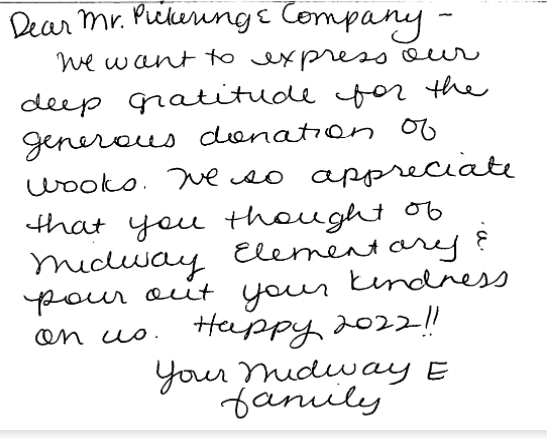 Dear Mr. Pickering & Company -
We want to express our
deep gratitude for the
generous donation of
books. We so appreciate
that you thought of
Midway Elementary &
pour out your kindness
on us. Happy 2022!!
Your Midway E
family